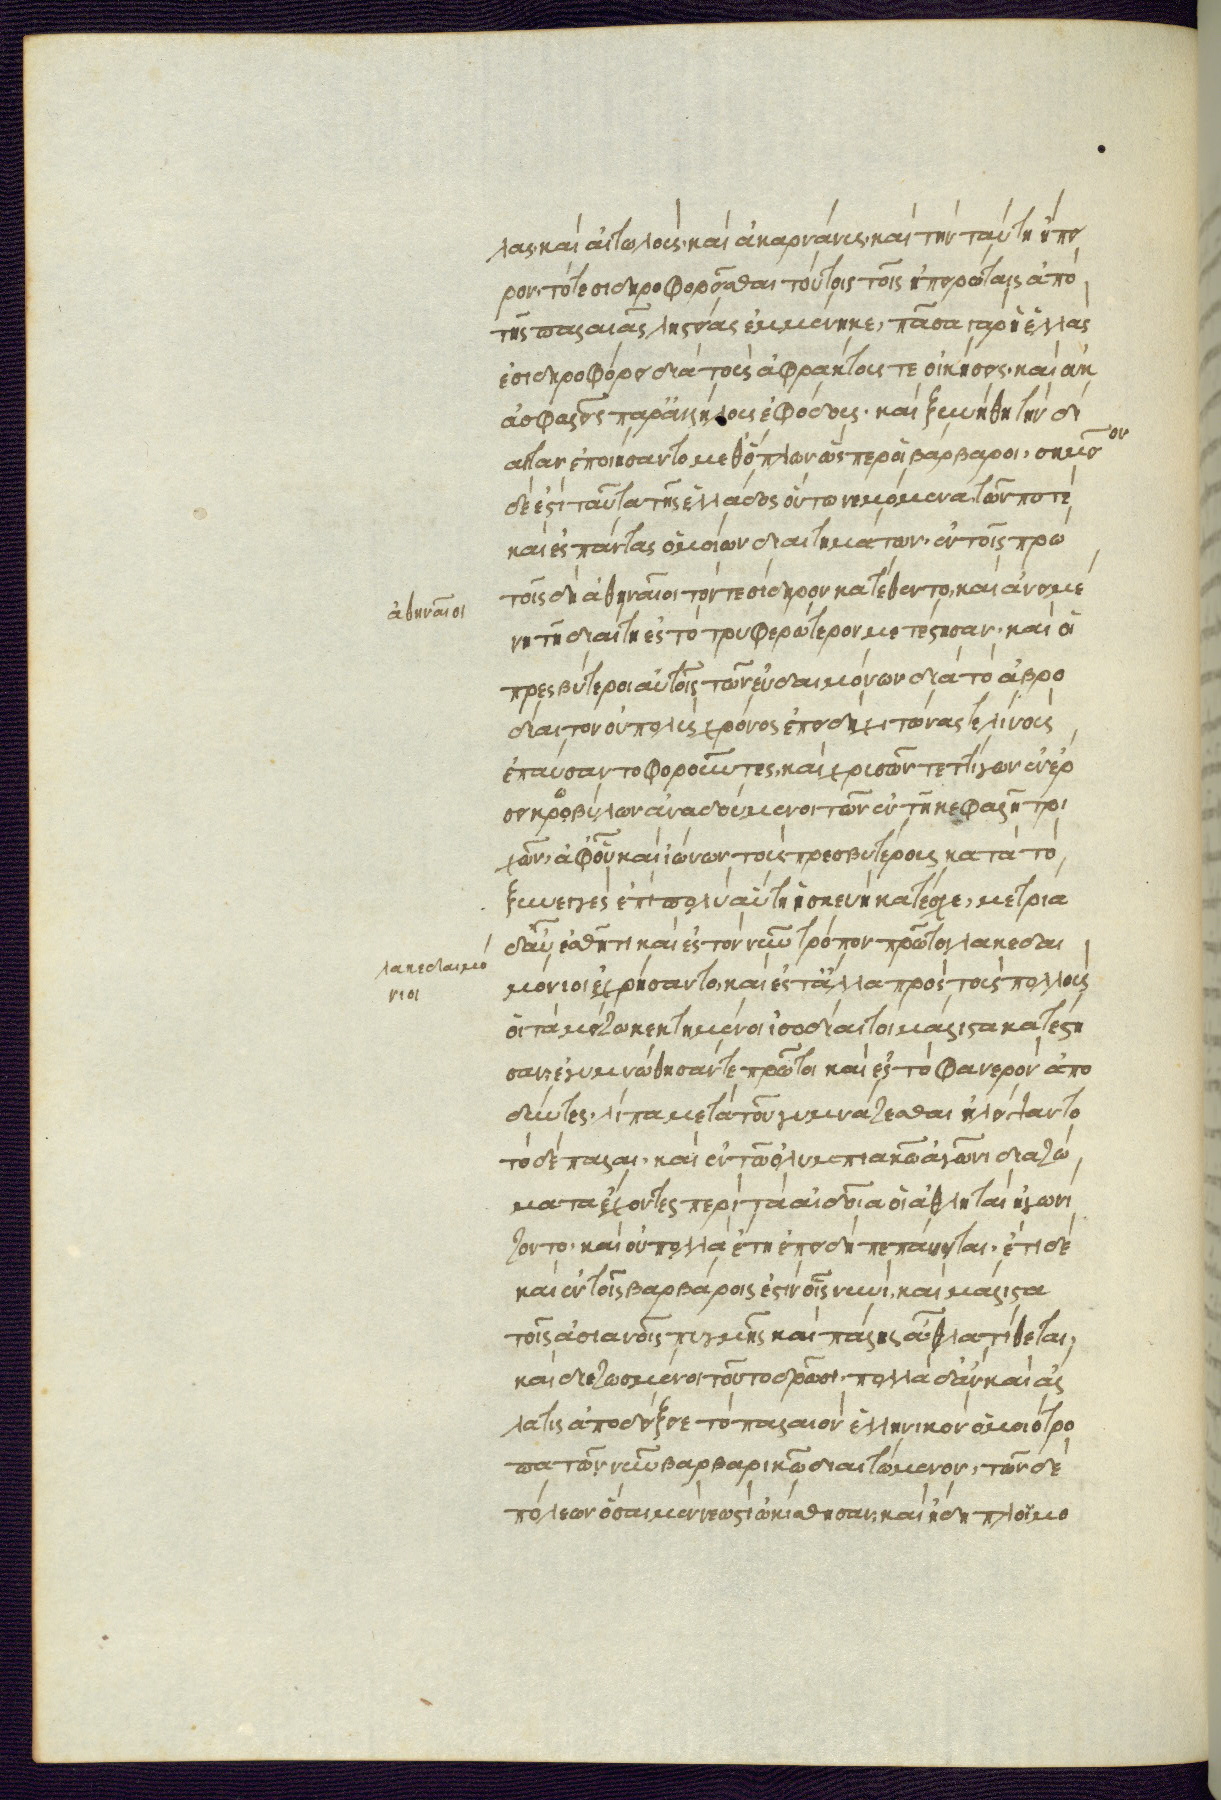 λας καὶ αἰτωλοὺς· καὶ ἀκαρνάνας· καὶ τὴν ταύτη ἤπει
ρον· τό τε σιδηροφορεῖσθαι τούτοις τοῖς ἠπειρώταις ἀπὸ
τῆς παλαιᾶς ληστείας ἐμμεμένηκε, πᾶσα γὰρ ἡ ἑλλὰς
ἐσιδηροφόρει διὰ τοὺς ἀφράκτους τε οἰκήσεις· καὶ οὐκ
ἀσφαλεῖς παρ' ἀλλήλους ἐφόδους· καὶ ξυνήθη τὴν δί
αιταν ἐποιήσαντο μεθ' ὅπλων ὥσπερ οἱ βάρβαροι, σημεῖον
δέ ἐστι ταῦτα τῆς ἑλλάδος οὕτω νεμόμενα, τῶν ποτὲ
καὶ ἐς πάντας ὁμοίων διαιτημάτων· ἐν τοῖς πρώ
τοις δὴ ἀθηναῖοι τόν τε σίδηρον κατέθεντο, καὶ ἀνειμέ
ἀθηναῖοι
νη τῇ διαίτη ἐς τὸ τρυφερώτερον μετέστησαν· καὶ οἱ
πρεσβύτεροι αὐτοῖς τῶν εὐδαιμόνων διὰ τὸ ἁβρο
δίαιτον οὐ πολὺς χρόνος ἐπειδὴ χιτῶνας τε λινοῦς
ἐπαύσαντο φοροῦντες, καὶ χρυσῶν τεττίγων ἐν ἔρ
σει κρωβύλον ἀναδούμενοι τῶν ἐν τῇ κεφαλῇ τρι
χῶν· ἀφ' οὗ καὶ ἰώνων τοὺς πρεσβυτέρους κατὰ τὸ
ξυγγενὲς ἐπιπολὺ αὕτη ἡ σκευὴ κατέσχε, μετρία
δ' αὖ ἐσθῆτι καὶ ἐς τὸν νῦν τρόπον πρῶτοι λακεδαι
λακεδαιμό
νιοι
μόνιοι ἐχρήσαντο, καὶ ἐς τἄλλα πρὸς τοὺς πολλοὺς
οἱ τὰ μείζω κεκτημένοι ἰσοδίαιτοι μάλιστα κατέστη
σαν, ἐγυμνώθησάν τε πρῶτοι καὶ ἐς τὸ φανερὸν ἀπο
δύντες, λίπα μετὰ τοῦ γυμνάζεσθαι ἠλείψαντο
τὸ δὲ πάλαι· καὶ ἐν τῶ ὀλυμπιακῶ ἀγῶνι διαζώ
ματα ἔχοντες περὶ τὰ αἰδοῖα οἱ ἀθληταὶ ἠγωνί
ζοντο· καὶ οὐ πολλὰ ἔτη ἐπειδὴ πέπαυνται· ἔτι δὲ
καὶ ἐν τοῖς βαρβάροις ἔστιν οἷς νῦν, καὶ μάλιστα
τοῖς ἀσιανοῖς πυγμῆς καὶ πάλης ἆθλα τίθεται,
καὶ διεζωσμένοι τοῦτο δρῶσι· πολλὰ δ' ἂν καὶ ἄλ
λα τὶς ἀποδείξειε τὸ παλαιὸν ἑλληνικὸν ὁμοιότρο
πα τῶ νῦν βαρβαρικῶ διαιτώμενον, τῶν δὲ
πόλεων ὅσαι μὲν νεώτι ὠκίσθησαν, καὶ ἤδη πλοϊμο